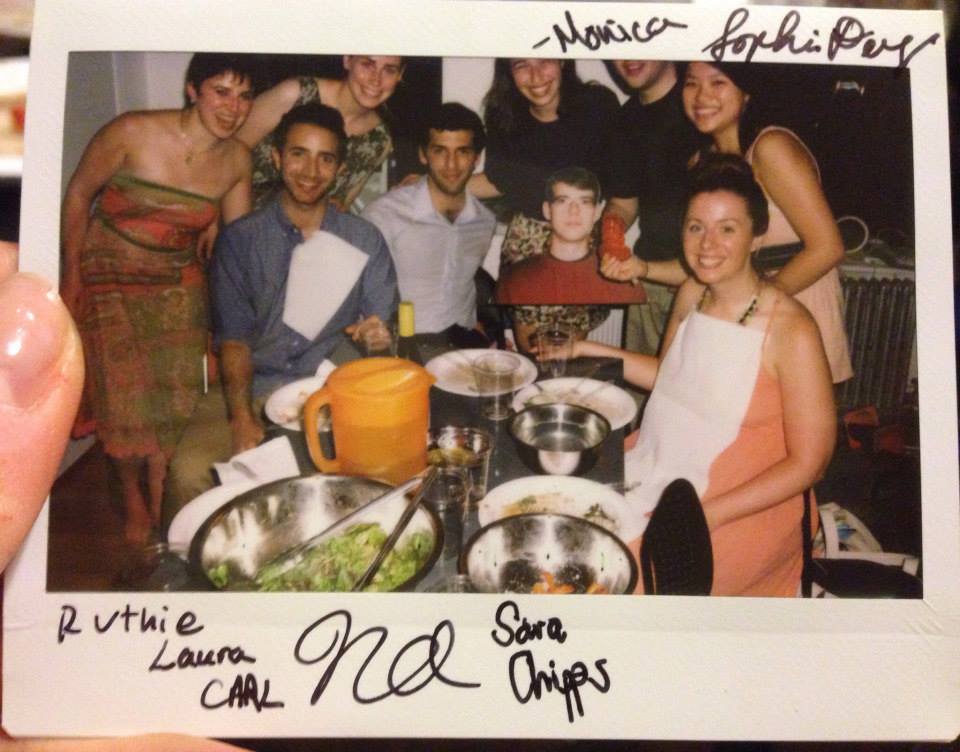 -Monica
Sophie
Ruthie
Laura
CARL
Sara
Chipps